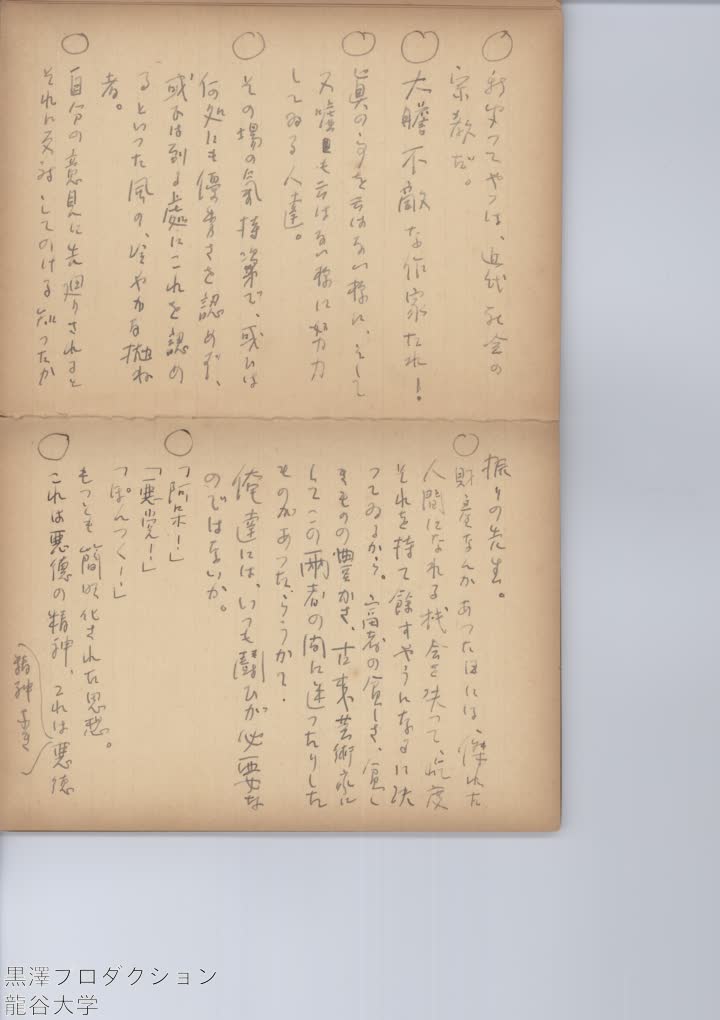 ○ 新聞つてやつは、近代社会の
宗教だ。
○ 大膽不敵な作家たれ!
○ 眞の事を云はない様に、そして
又嘘も云はない様に努力
してゐる人達。
○ その場の氣持次第で、或ひは
何処にも優秀さを認めず、
或ひは到る處にこれを認め
るといつた風の、冷やかな拗ね
者。
○ 自分の意見に先廻りされると
それに反対してのける
振りの先生。
○ 財産なんかあつた日には、傑れた
人間になれる机会を失つて、屹度
それを持て餘すやうになるに決
つてゐるから。富者の貧しさ、貧し
きものの豊かさ、古来芸術家に
してこの両者の間に迷つたりした
ものがあつたらうかて.
俺達には、いつも鬪ひが必要な
のではないか。
○ 「阿呆!」
「悪党!」
「ぽんつく!」
もつとも簡明化された思想。
○ これは悪徳の精神、これは悪徳
精神
黒澤プロダクション
龍谷大学